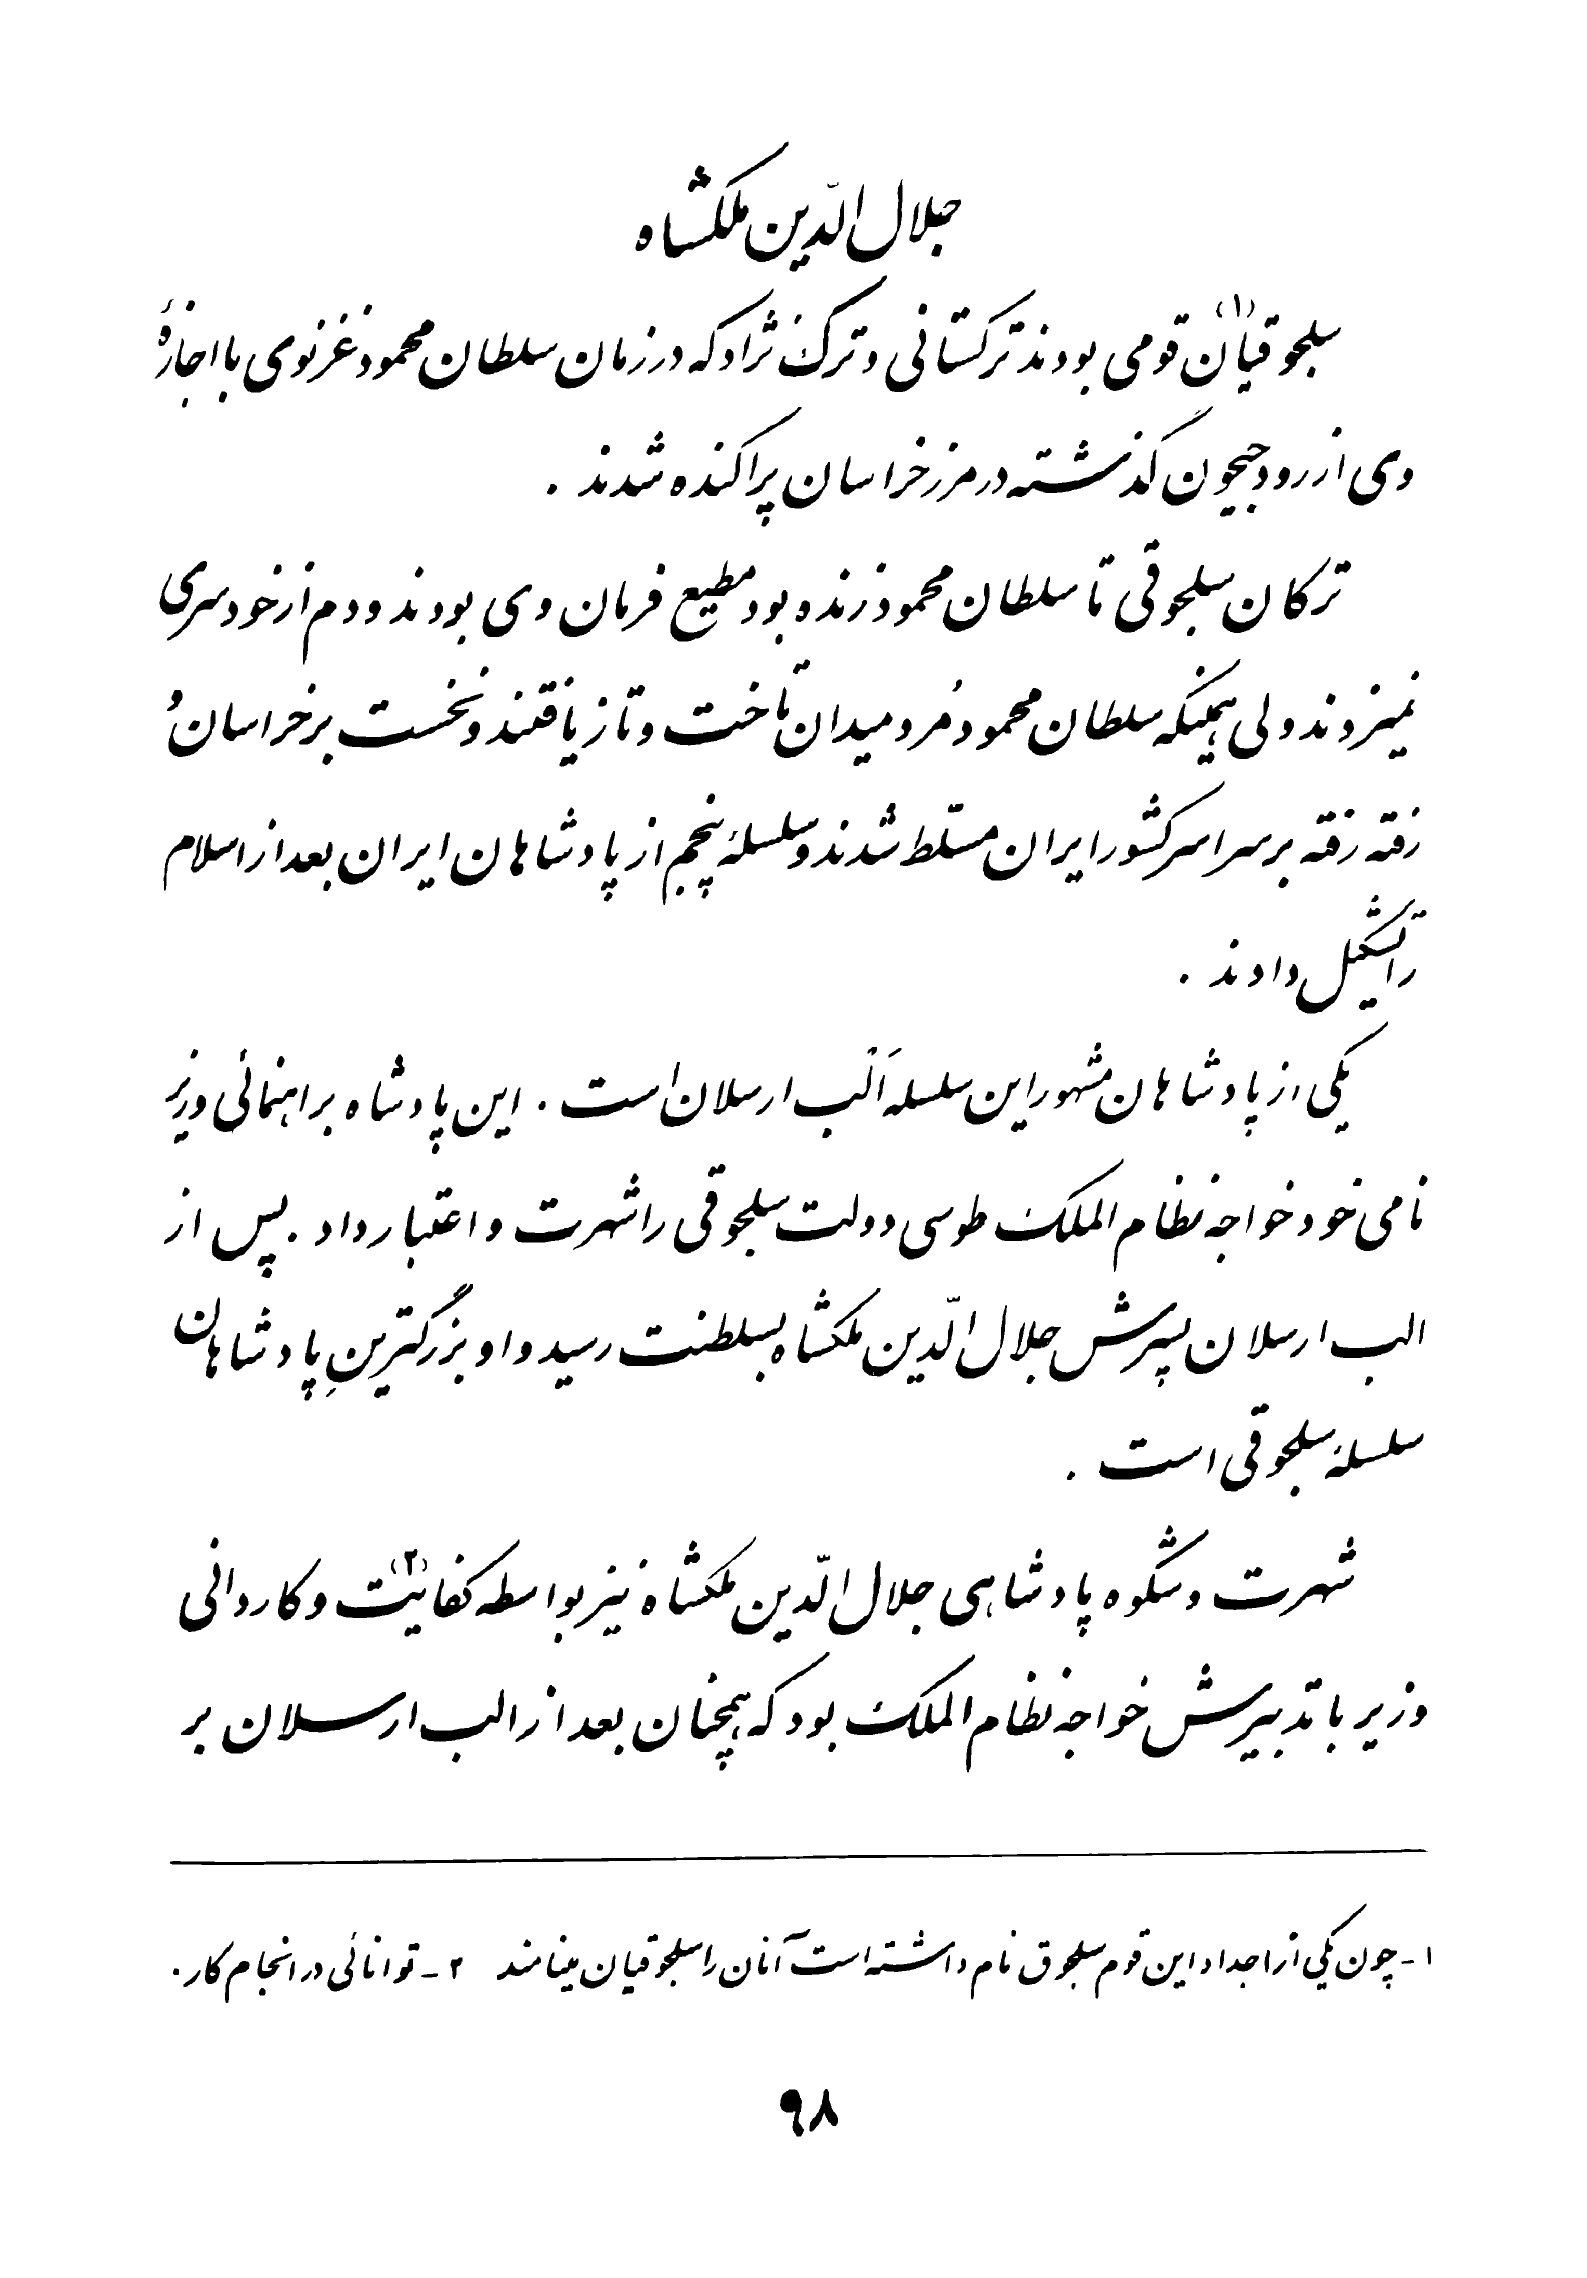 جلال الدّین ملکشاه
سلجوقیان(۱) قومی بودند ترکستانی و ترک نژاد که در زمان سلطان محمود غزنوی با اجازهٔ
وی از رود جیحون گذشته در مرز خراسان پراکنده شدند .
ترکان سلجوقی تا سلطان محمود زنده بود مطیع فرمان وی بودند و دم از خودسری
نمیزدند ولی همینکه سلطان محمود مُرد میدان تاخت و تاز یافتند و نخست بر خراسان وُ
رفته رفته بر سراسر کشور ایران مسلّط شدند و سلسلهٔ پنجم از پادشاهان ایران بعد از اسلام
را تشکیل دادند .
یکی از پادشاهان مشهور این سلسله اَلْب ارسلان است . این پادشاه براهنمائی وزیر
نامی خود خواجه نظام الملک طوسی دولت سلجوقی را شهرت و اعتبار داد . پس از
الب ارسلان پسرش جلال الدّین ملکشاه بسلطنت رسید و او بزرگترینِ پادشاهان
سلسلهٔ سلجوقی است .
شهرت و شکوه پادشاهی جلال الدّین ملکشاه نیز بواسطه کفایت(۲) و کاردانی
وزیر با تدبیرش خواجه نظام الملک بود که همچنان بعد از الب ارسلان بر
۱- چون یکی از اجداد این قوم سلجوق نام داشته است آنان را سلجوقیان مینامند   ۲- توانائی در انجام کار .
۹۸